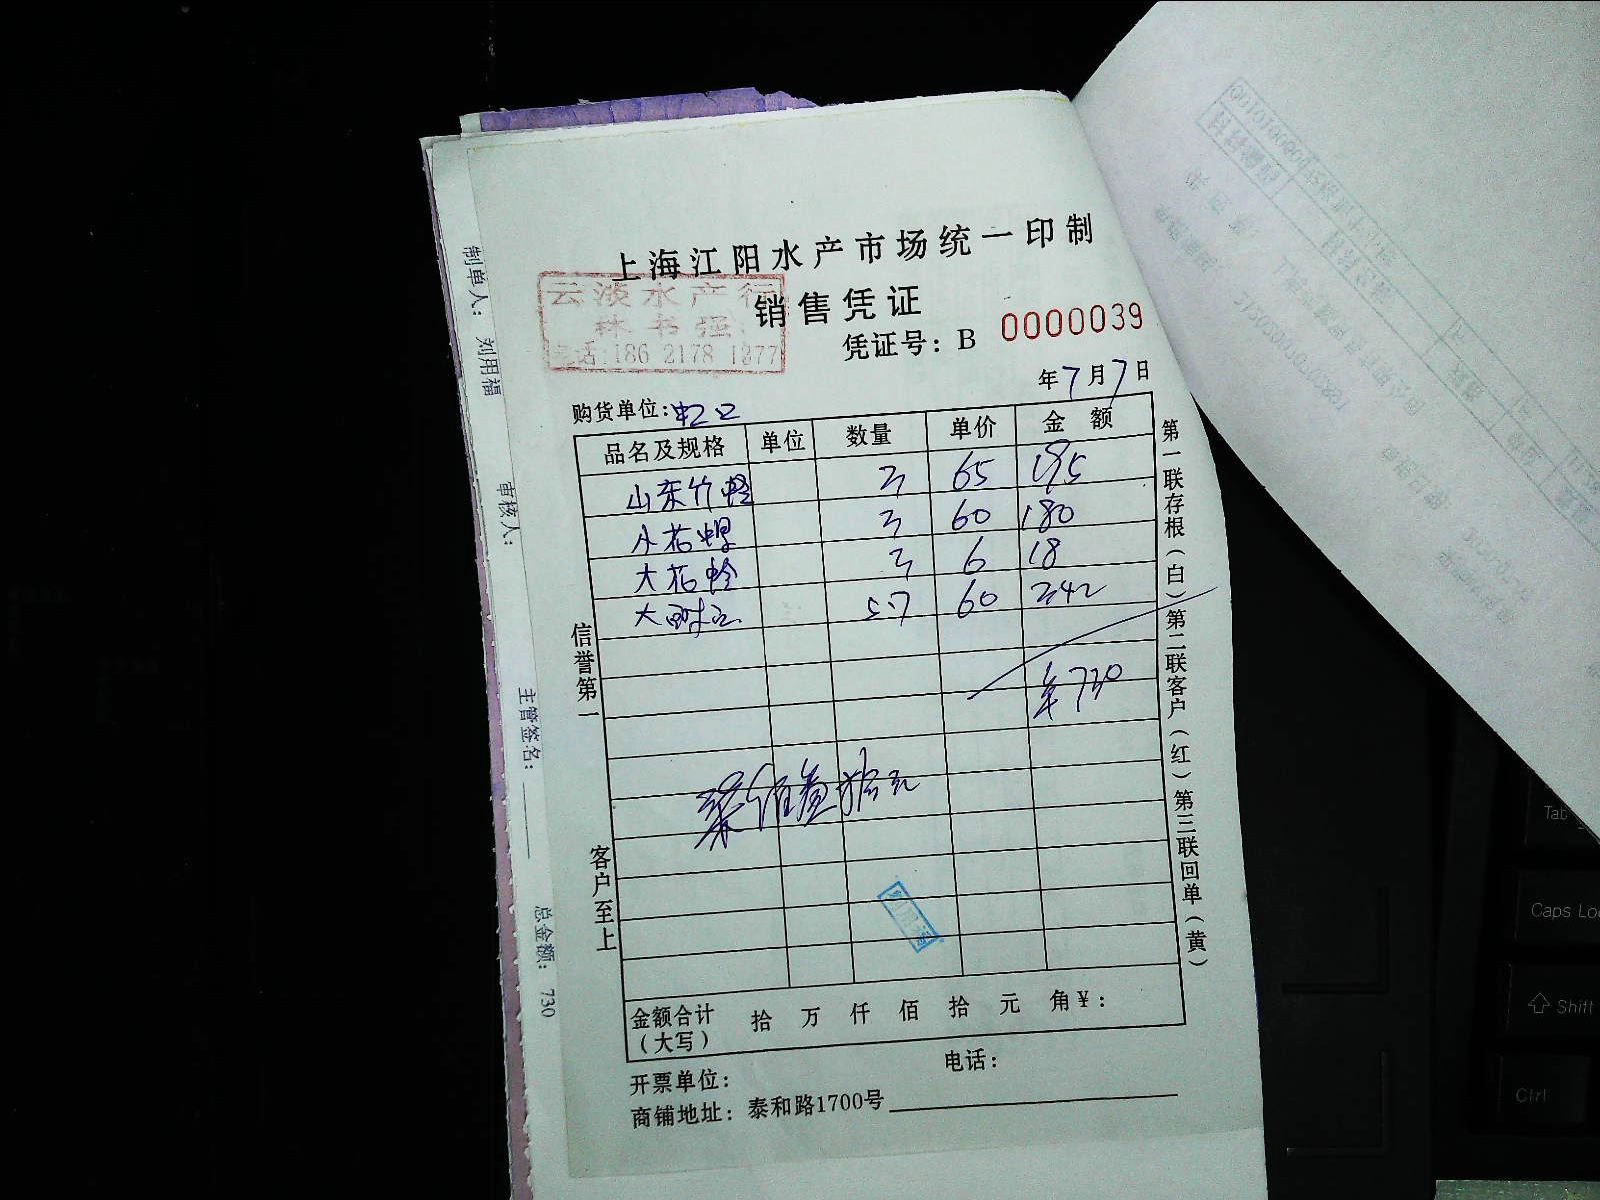 上海江阳水产市场统一印制
云淡水产行
林书强
电话:186 2178 1277
销售凭证
凭证号：B 0000039
年7月7日
购货单位:虹口
品名及规格 单位 数量 单价 金额
山东竹蛏 3 65 195
小花螺 3 60 180
大花蛤 3 6 18
大 5.7 60 342
¥730
柒佰叁拾元
金额合计 拾 万 仟 佰 拾 元 角¥：
（大写）
开票单位： 电话：
商铺地址：泰和路1700号
信誉第一
客户至上
第一联存根（白）第二联客户（红）第三联回单（黄）
制单人： 刘用福
审核人：
主管签名：
总金额： 730
Tab
Caps Lo
Shift
Ctrl